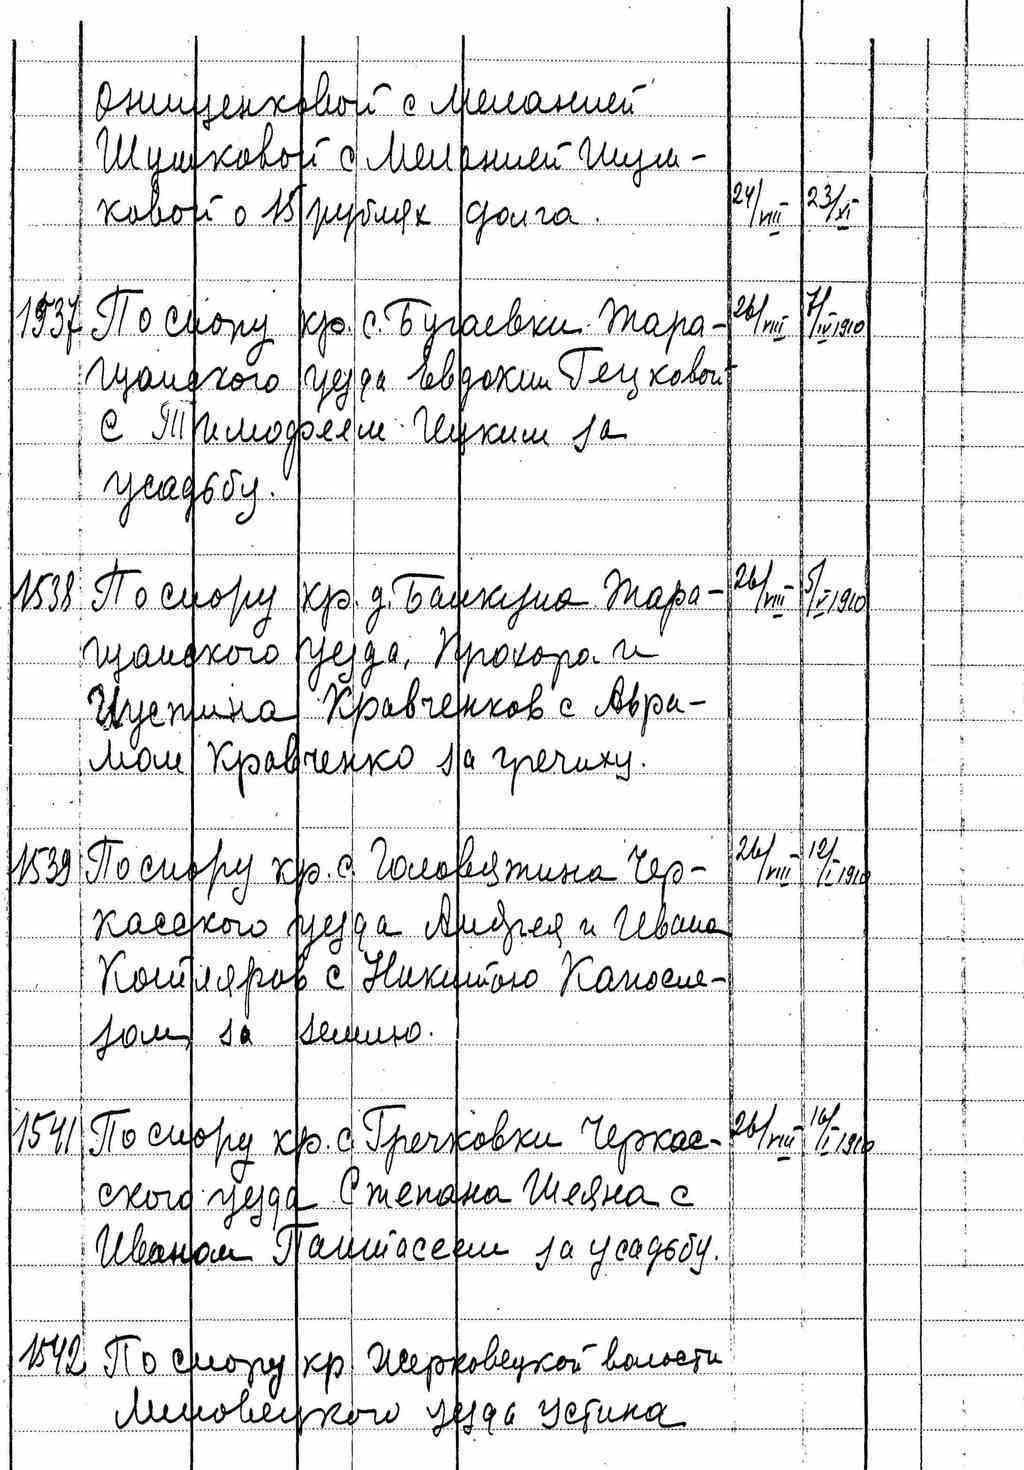 Онищенковой с Меланией
Шушковой с Меланией Шуш-
ковой о 15 рублях долга. 24/VIII- 23/XI-
1537 По спору кр. с. Бугаевки Тара- 26/VIII- 7/IV-1910
щанского уезда Евдокии Гецковой
с Тимофеем Гецким за
усадьбу.
1538 По спору кр. д. Башкуна Тара- 26/VIII- 5/V-1910
щанского уезда, Прохора и
Иустина Кравченков с Авра-
мом Кравченко за гречиху.
1539 По спору кр. с. Головятина Чер- 26/VIII- 12/I-1910
касского уезда Андрея и Ивана
Котляров с Никитою
за землю.
1541 По спору кр. с Гречковки Черкас- 26/VIII- 16/I-1910
ского уезда Степана Шеяна с
Иваном за усадьбу.
1542 По спору кр волости
Липовецкого уезда Устина